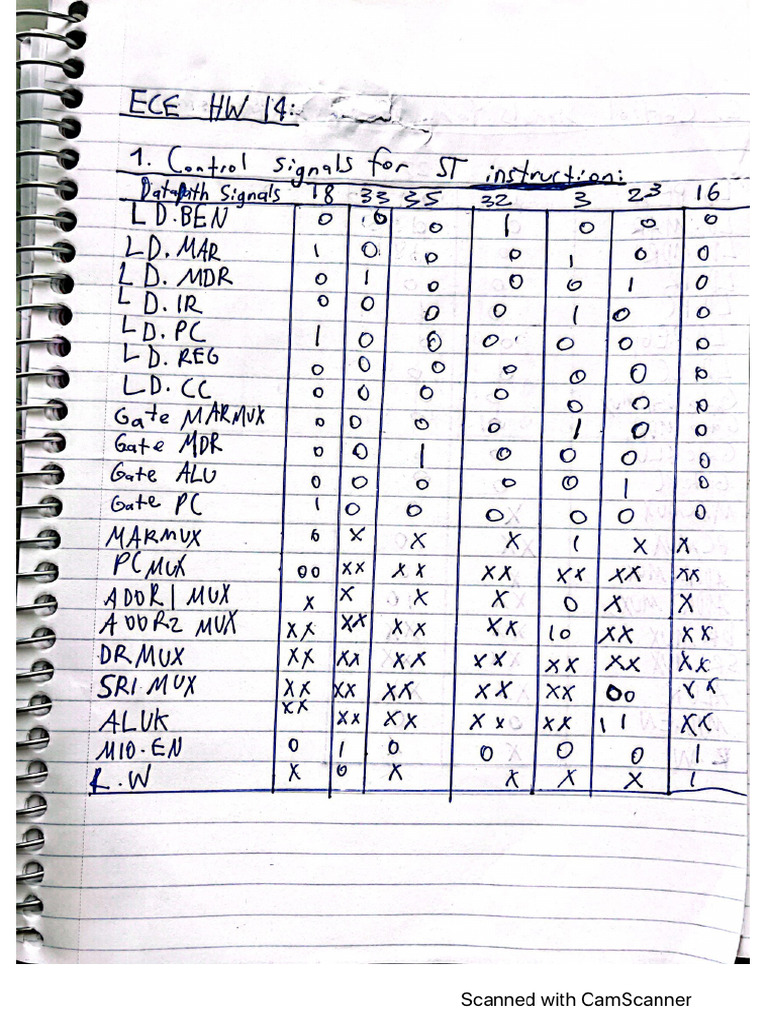 ECE HW 14:
1. Control signals for ST instruction:
Datapath Signals 18 33 35 32 3 23 16
LD.BEN 0 0 0 1 0 0 0
LD.MAR 1 0 0 0 1 0 0
LD.MDR 0 1 0 0 0 1 0
LD.IR 0 0 0 0 1 0 0
LD.PC 1 0 0 0 0 0 0
LD.REG 0 0 0 0 0 0 0
LD.CC 0 0 0 0 0 0 0
Gate MARMUX 0 0 0 0 1 0 0
Gate MDR 0 0 1 0 0 0 0
Gate ALU 0 0 0 0 0 1 0
Gate PC 1 0 0 0 0 0 0
MARMUX 0 X X X 1 X X
PCMUX 00 XX XX XX XX XX XX
ADDR1 MUX X X X X 0 X X
ADDR2 MUX XX XX XX XX 10 XX XX
DRMUX XX XX XX XX XX XX XX
SR1.MUX XX XX XX XX XX 00 XX
ALUK XX XX XX XX XX 11 XX
MIO.EN 0 1 0 0 0 0 1
R.W X 0 X X X X 1
Scanned with CamScanner